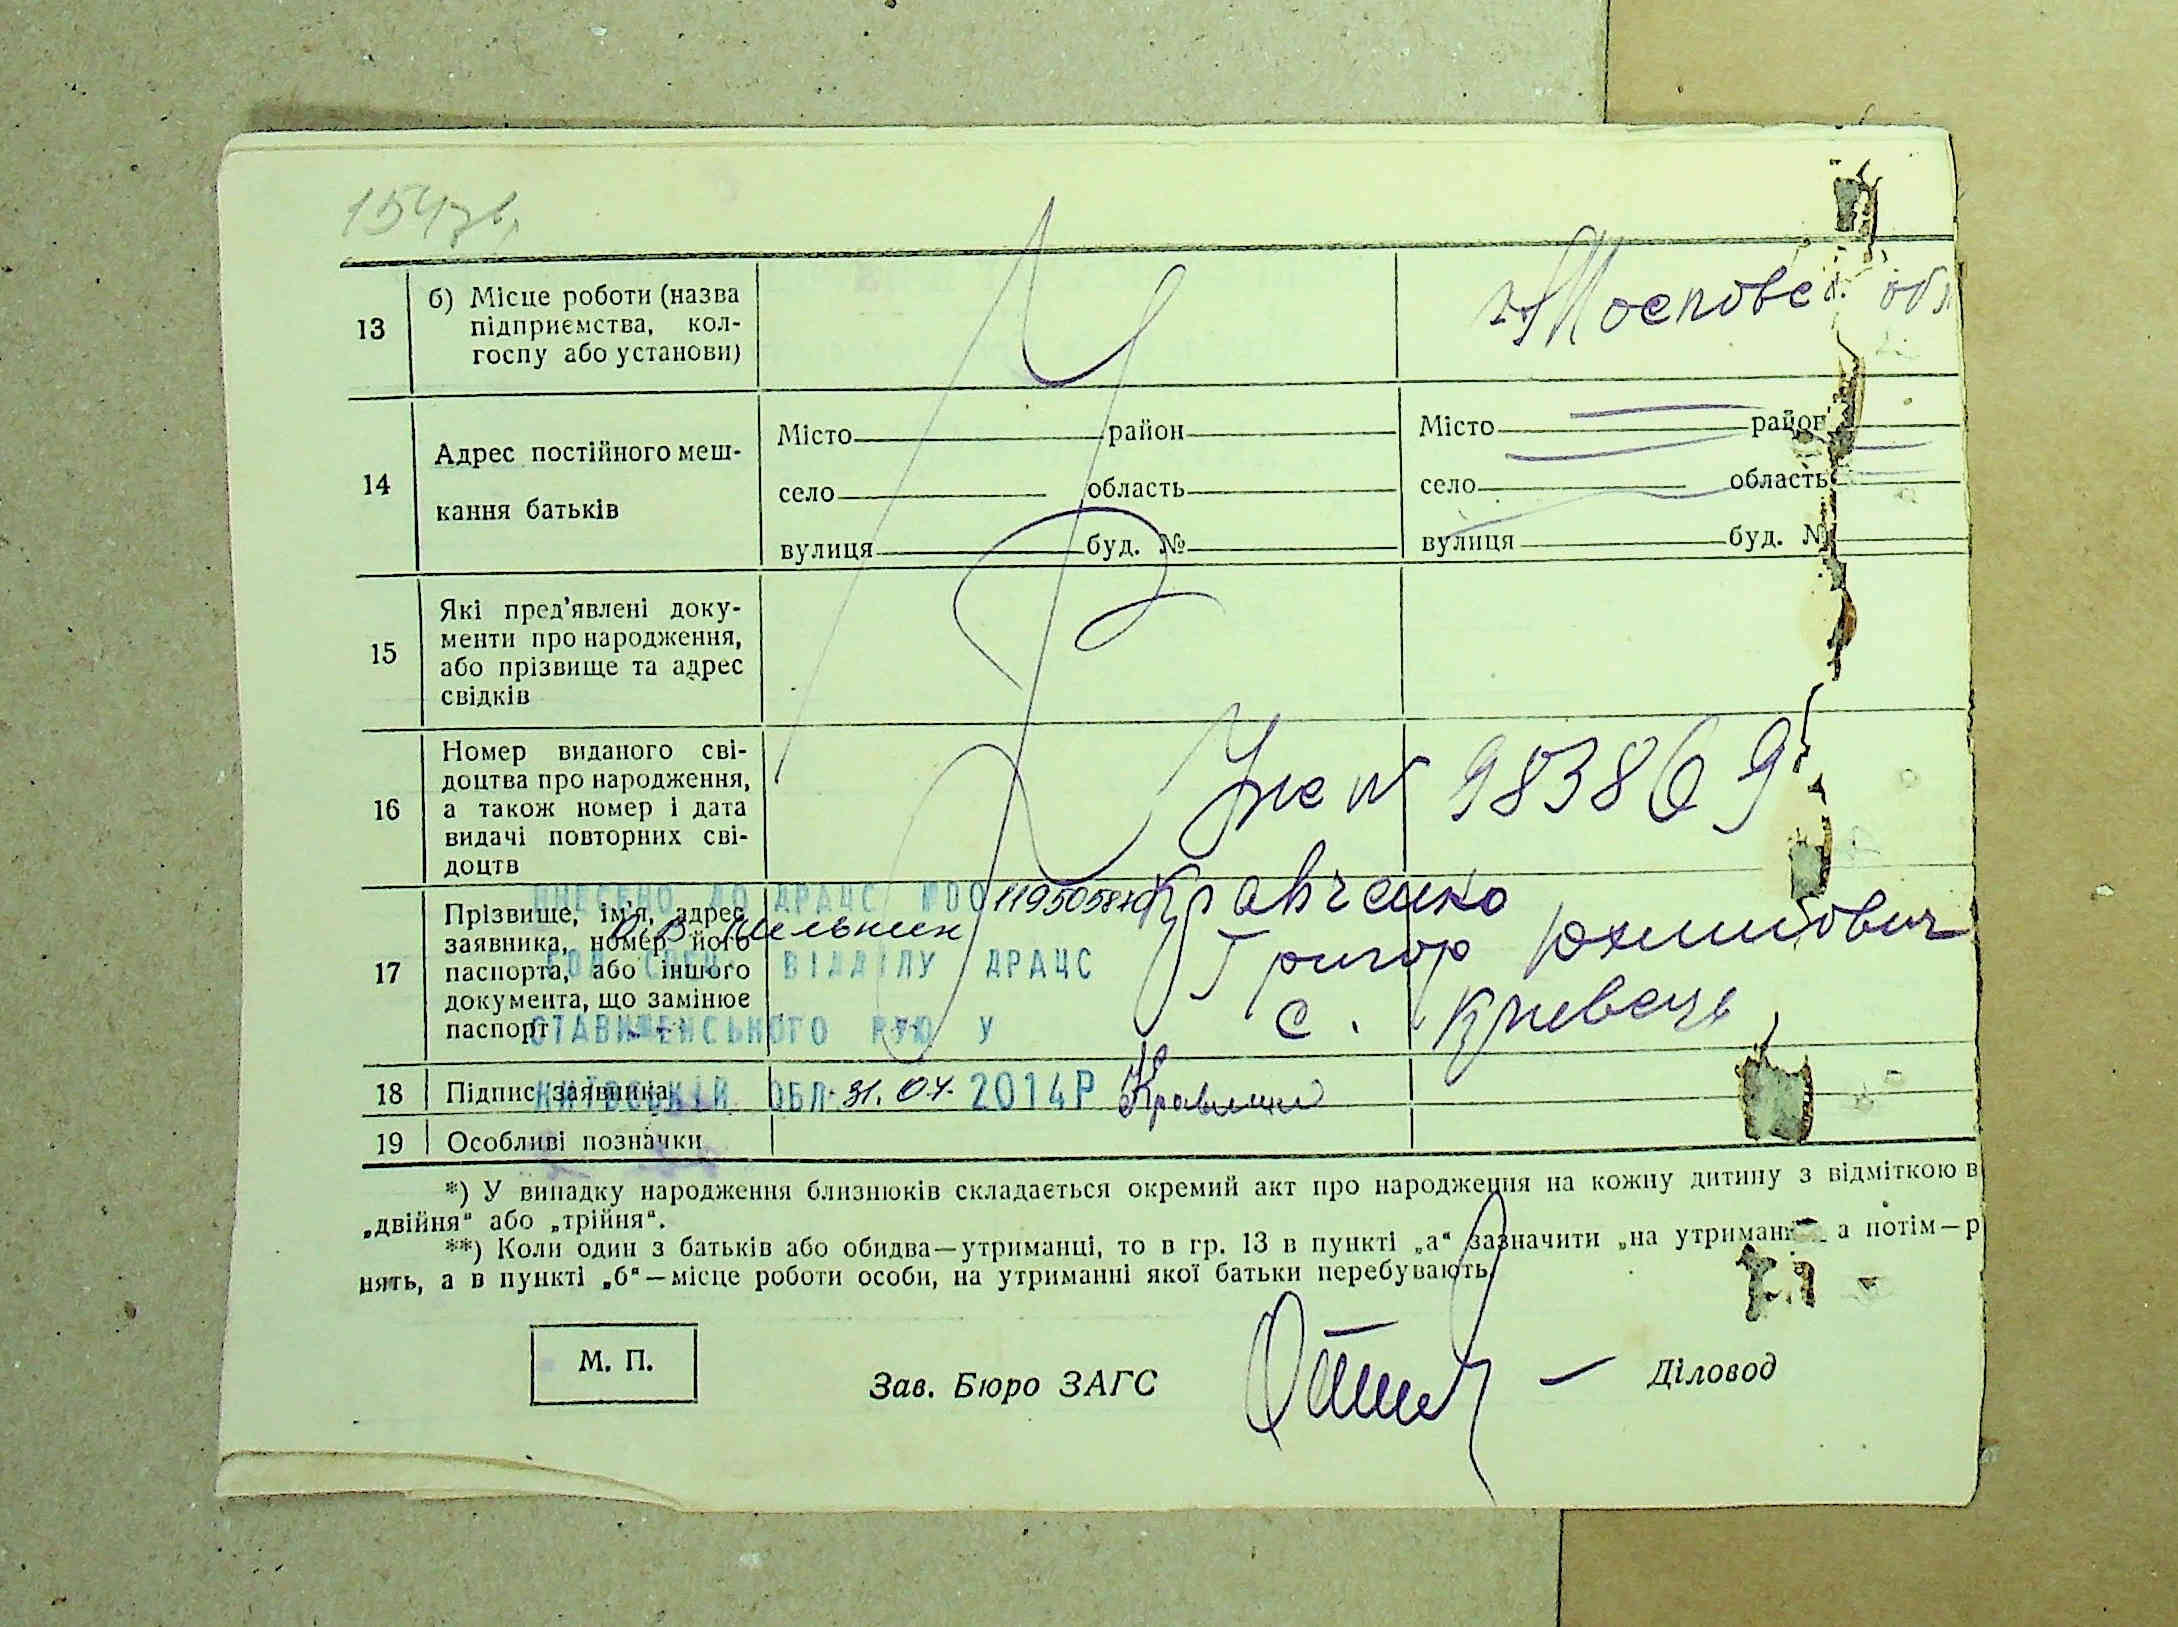 154зв.
13
б) Місце роботи (назва
підприємства, кол-
госпу або установи)
14
Адрес постійного меш-
кання батьків
Місто район
село область
вулиця буд. №
Місто район
село область
вулиця буд. №
15
Які пред’явлені доку-
менти про народження,
або прізвище та адрес
свідків
16
Номер виданого сві-
доцтва про народження,
а також номер і дата
видачі повторних сві-
доцтв
№ 983869
17
Прізвище, ім’я, адрес
заявника, номер його
паспорта, або іншого
документа, що замінює
паспорт
Кравченко
Григор Юхимович
с. Кривець
ВНЕСЕНО ДО ДРАЦС
ВІДДІЛУ ДРАЦС
СТАВИЩЕНСЬКОГО РУЮ У
КИЇВСЬКІЙ ОБЛ. 31.07.2014Р
18
Підпис заявника
19
Особливі позначки
*) У випадку народження близнюків складається окремий акт про народження на кожну дитину з відміткою в
„двійня“ або „трійня“.
**) Коли один з батьків або обидва—утриманці, то в гр. 13 в пункті „а“ зазначити „на утриманні а потім—р
нять, а в пункті „б“—місце роботи особи, на утриманні якої батьки перебувають.
М. П.
Зав. Бюро ЗАГС
Діловод